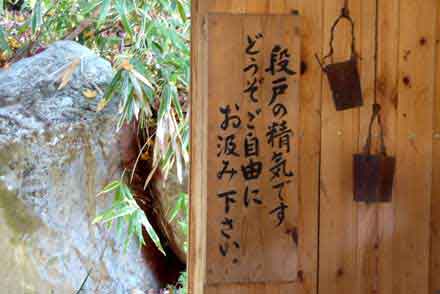 段戸の精気です
どうぞご自由に
お汲み下さい。